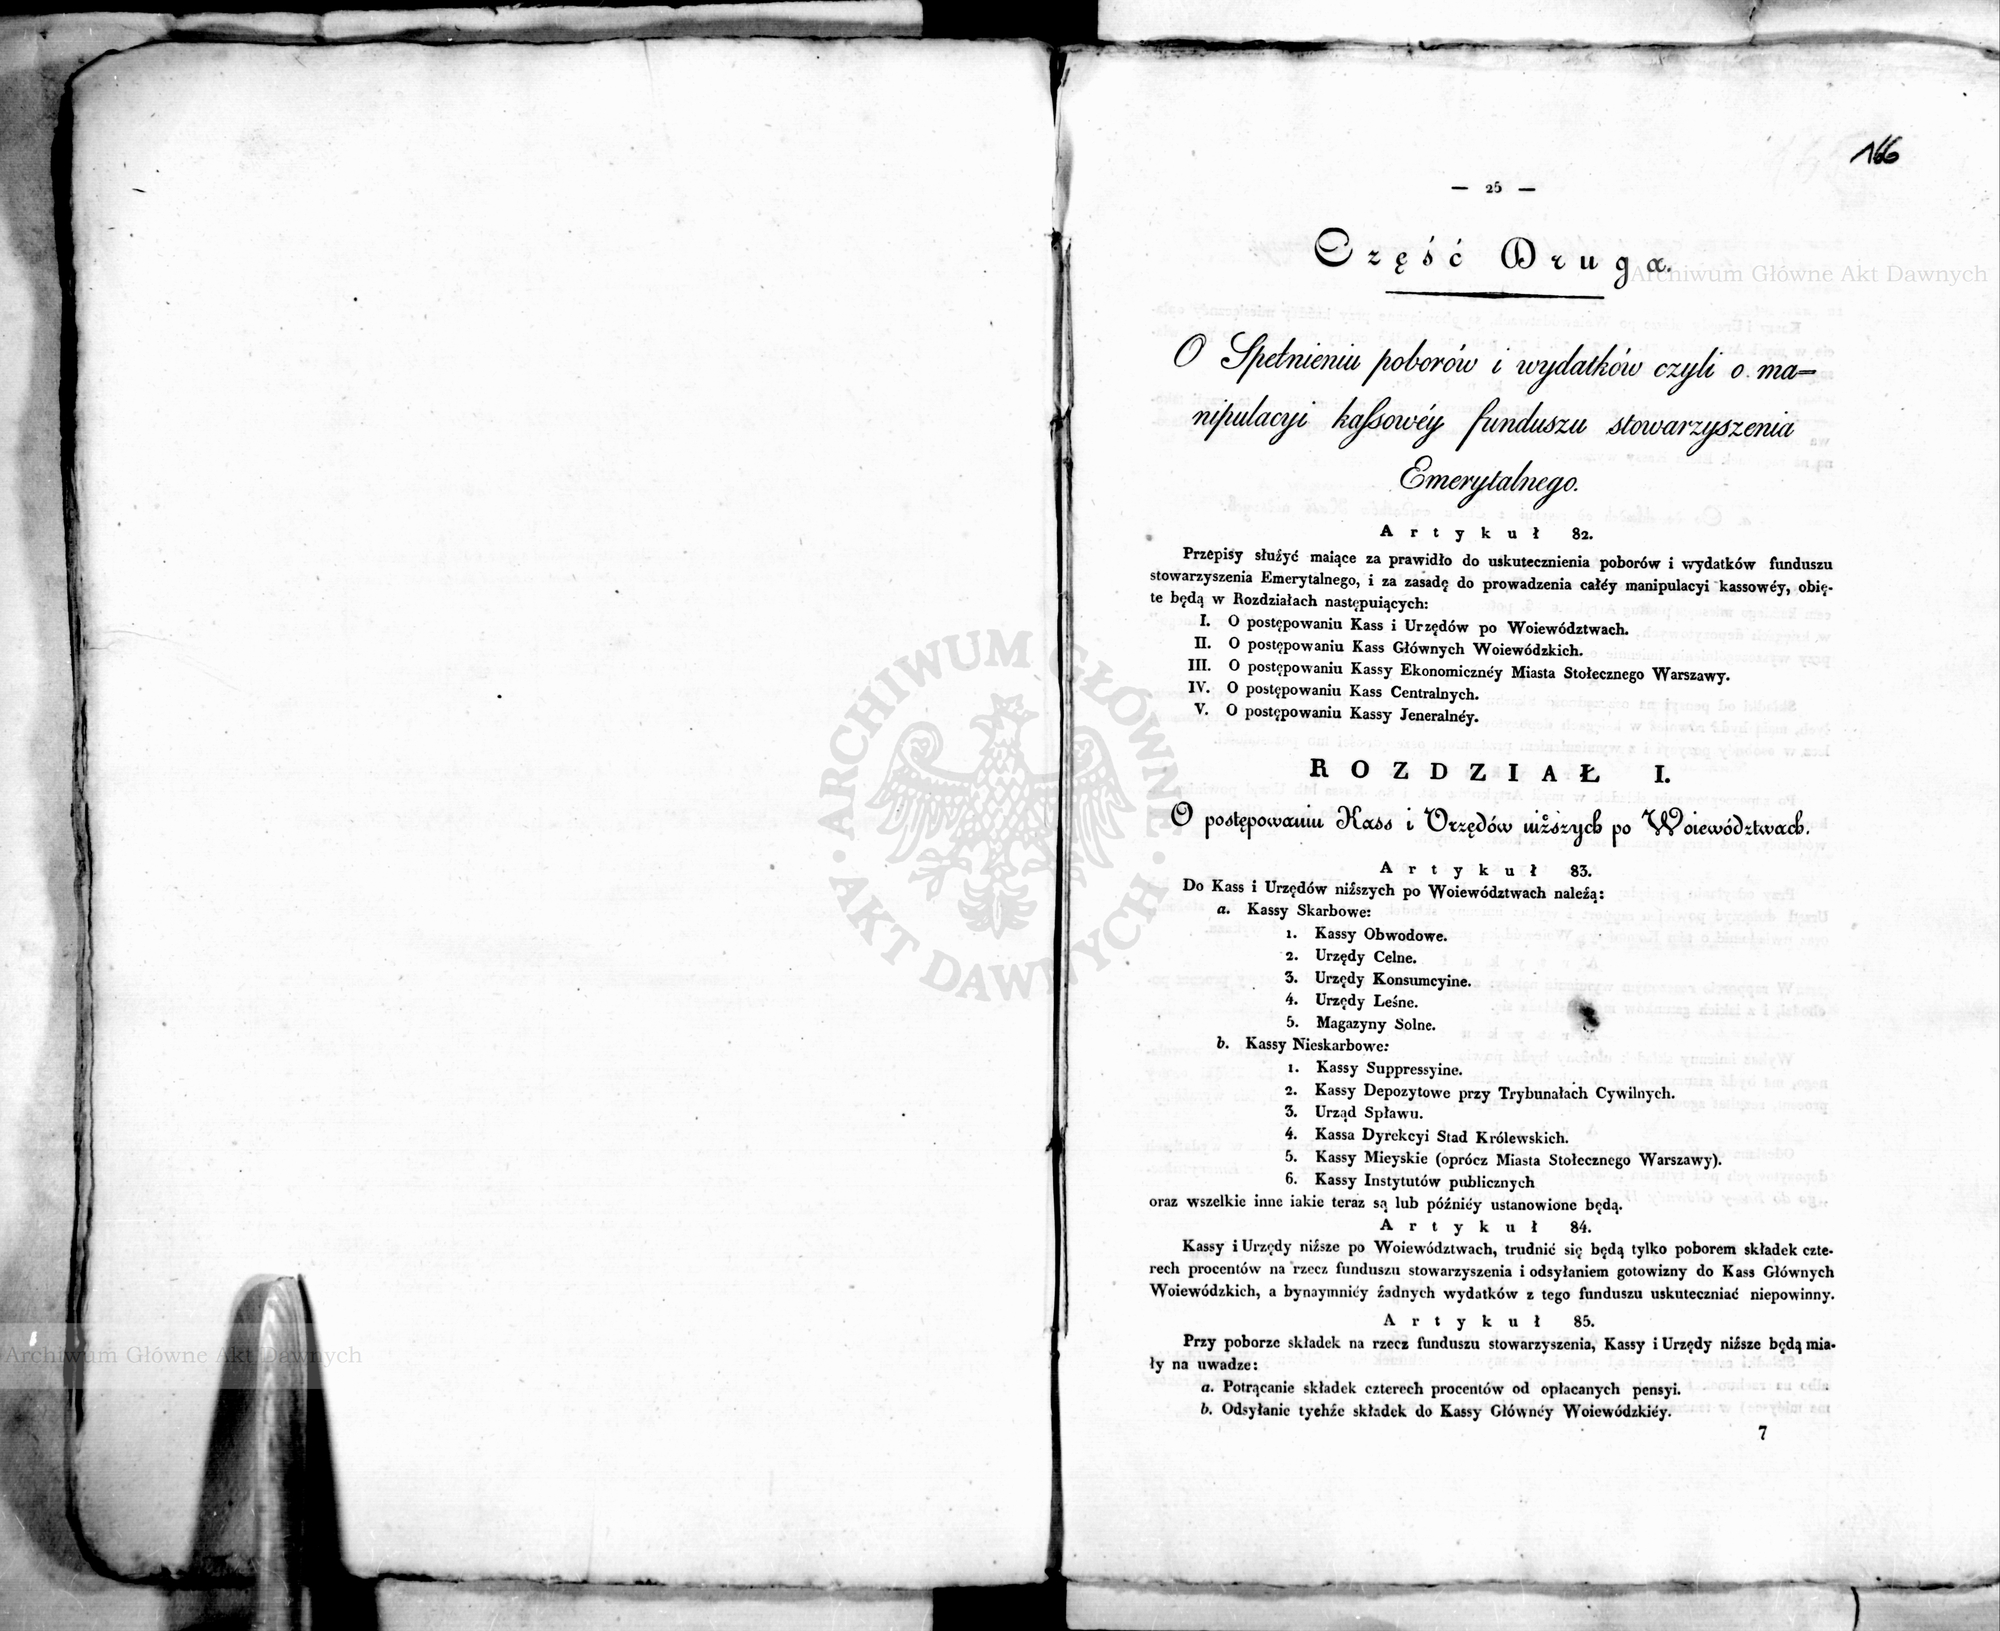 166
— 25 —
Część Druga.
O Spełnieniu poborów i wydatków czyli o ma=
nipulacyi kaſsowéy funduszu stowarzyszenia
Emerytalnego.
Artykuł 82.
Przepisy służyć maiące za prawidło do uskutecznienia poborów i wydatków funduszu
stowarzyszenia Emerytalnego, i za zasadę do prowadzenia całéy manipulacyi kassowéy, obię-
te będą w Rozdziałach następuiących:
I. O postępowaniu Kass i Urzędów po Woiewództwach.
II. O postępowaniu Kass Głównych Woiewódzkich.
III. O postępowaniu Kassy Ekonomicznéy Miasta Stołecznego Warszawy.
IV. O postępowaniu Kass Centralnych.
V. O postępowaniu Kassy Jeneralnéy.
ROZDZIAŁ I.
O postępowaniu Kass i Urzędów niższych po Woiewództwach.
Artykuł 83.
Do Kass i Urzędów niższych po Woiewództwach należą:
a. Kassy Skarbowe:
1. Kassy Obwodowe.
2. Urzędy Celne.
3. Urzędy Konsumcyine.
4. Urzędy Leśne.
5. Magazyny Solne.
b. Kassy Nieskarbowe:
1. Kassy Suppressyine.
2. Kassy Depozytowe przy Trybunałach Cywilnych.
3. Urząd Spławu.
4. Kassa Dyrekcyi Stad Królewskich.
5. Kassy Mieyskie (oprócz Miasta Stołecznego Warszawy).
6. Kassy Instytutów publicznych
oraz wszelkie inne iakie teraz są lub późniéy ustanowione będą.
Artykuł 84.
Kassy i Urzędy niższe po Woiewództwach, trudnić się będą tylko poborem składek czte-
rech procentów na rzecz funduszu stowarzyszenia i odsyłaniem gotowizny do Kass Głównych
Woiewódzkich, a bynaymniéy żadnych wydatków z tego funduszu uskuteczniać niepowinny.
Artykuł 85.
Przy poborze składek na rzecz funduszu stowarzyszenia, Kassy i Urzędy niższe będą mia-
ły na uwadze:
a. Potrącanie składek czterech procentów od opłacanych pensyi.
b. Odsyłanie tychże składek do Kassy Głównéy Woiewódzkiéy.
7
Archiwum Główne Akt Dawnych
ARCHIWUM GŁÓWNE AKT DAWNYCH
Archiwum Główne Akt Dawnych